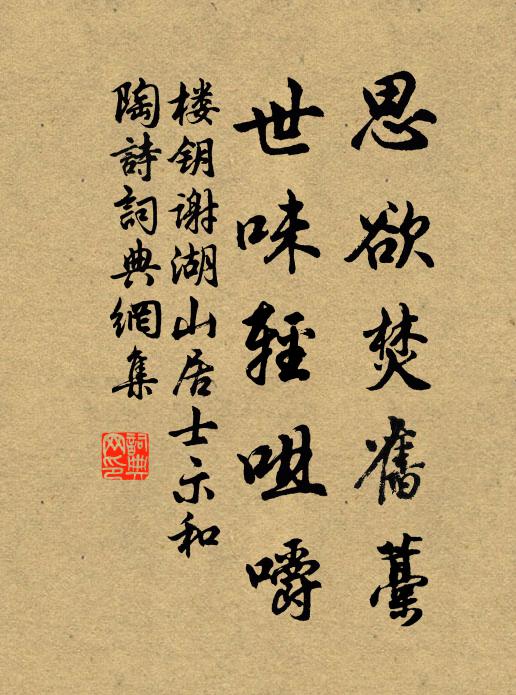 思欲焚舊藁
世味輕咀嚼
楼钥谢湖山居士示和
陶詩詞典網集
詞典网印